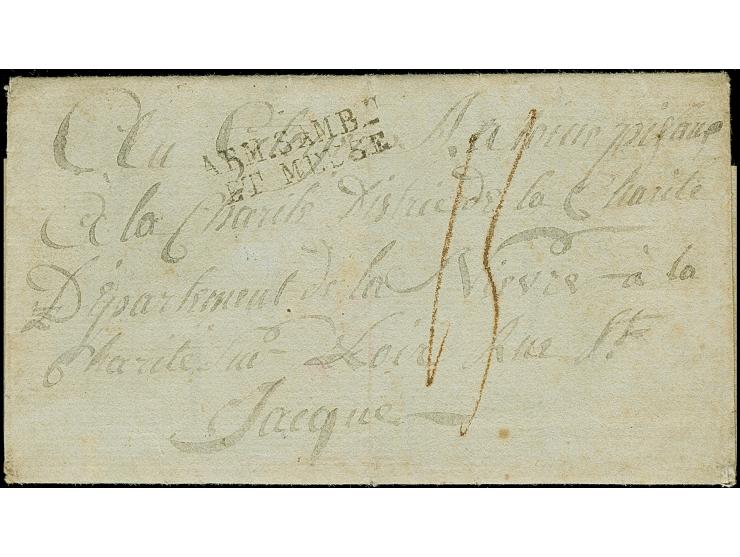 ARM.SAMB.E
ET MEUSE
Au
à la Charité District de la Charité
Département de la Nièvre à la
Charité sur Loire Rue St
Jacque
15